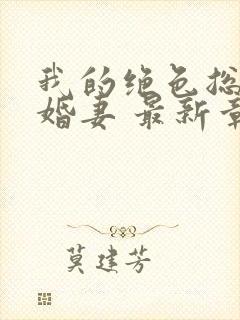 我的绝色总
婚妻 最新章
莫建芳